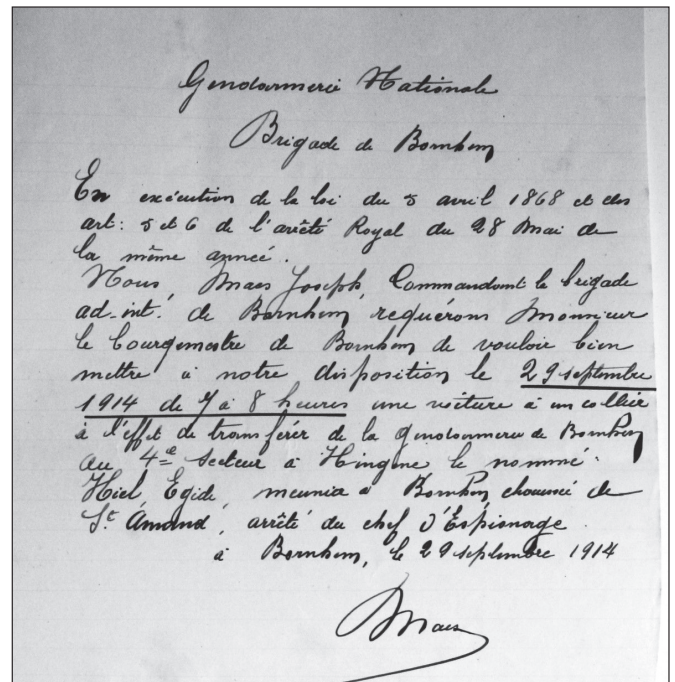 Gendarmerie Nationale
Brigade de Bornhem
En exécution de la loi du 5 avril 1868 et des
art: 5 et 6 de l'arrêté Royal du 28 Mai de
la même année.
Nous, Maes Joseph, Commandant le brigade
ad-int. de Bornhem, requérons Monsieur
le Bourgmestre de Bornhem de vouloir bien
mettre à notre disposition le 29 septembre
1914 de 7 à 8 heures une voiture à un collier
à l'effet de transférer de la gendarmerie de Bornhem
au 4e secteur à Hingene le nommé.
Hiel, Egide, meunier à Bornhem, chaussée de
St. Amand, arrêté du chef d'Espionage.
à Bornhem, le 29 septembre 1914
Maes